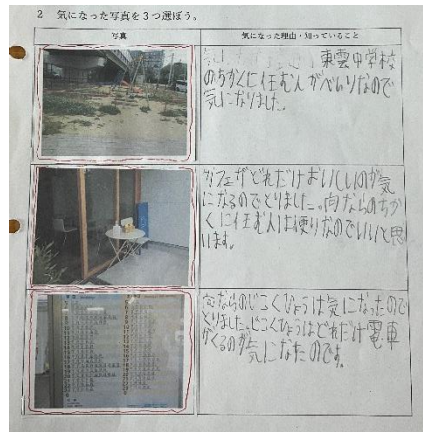 2 気になった写真を3つ選ぼう。
写真
気になった理由・知っていること
東雲中学校
のちかくに住む人がべんりなので
気になりました。
カフェがどれだけおいしいのか気
になるのでとりました。向ならのちか
くに住む人は便りなのでいいと思
います。
ならのじこくひょうは気になったので
とりました。じこくひょうはどれだけ電車
がくるのが気になたのです。